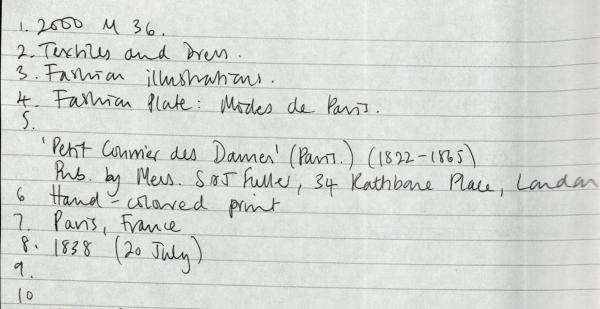 1. 2000 M 36.
2. Textiles and Dress.
3. Fashion illustrations.
4. Fashion Plate: Modes de Paris.
5.
'Petit Courrier des Dames' (Paris.) (1822-1865)
Pub. by Mess. S & J Fuller, 34 Rathbone Place, London
6 Hand-coloured print
7. Paris, France
8. 1838 (20 July)
9.
10